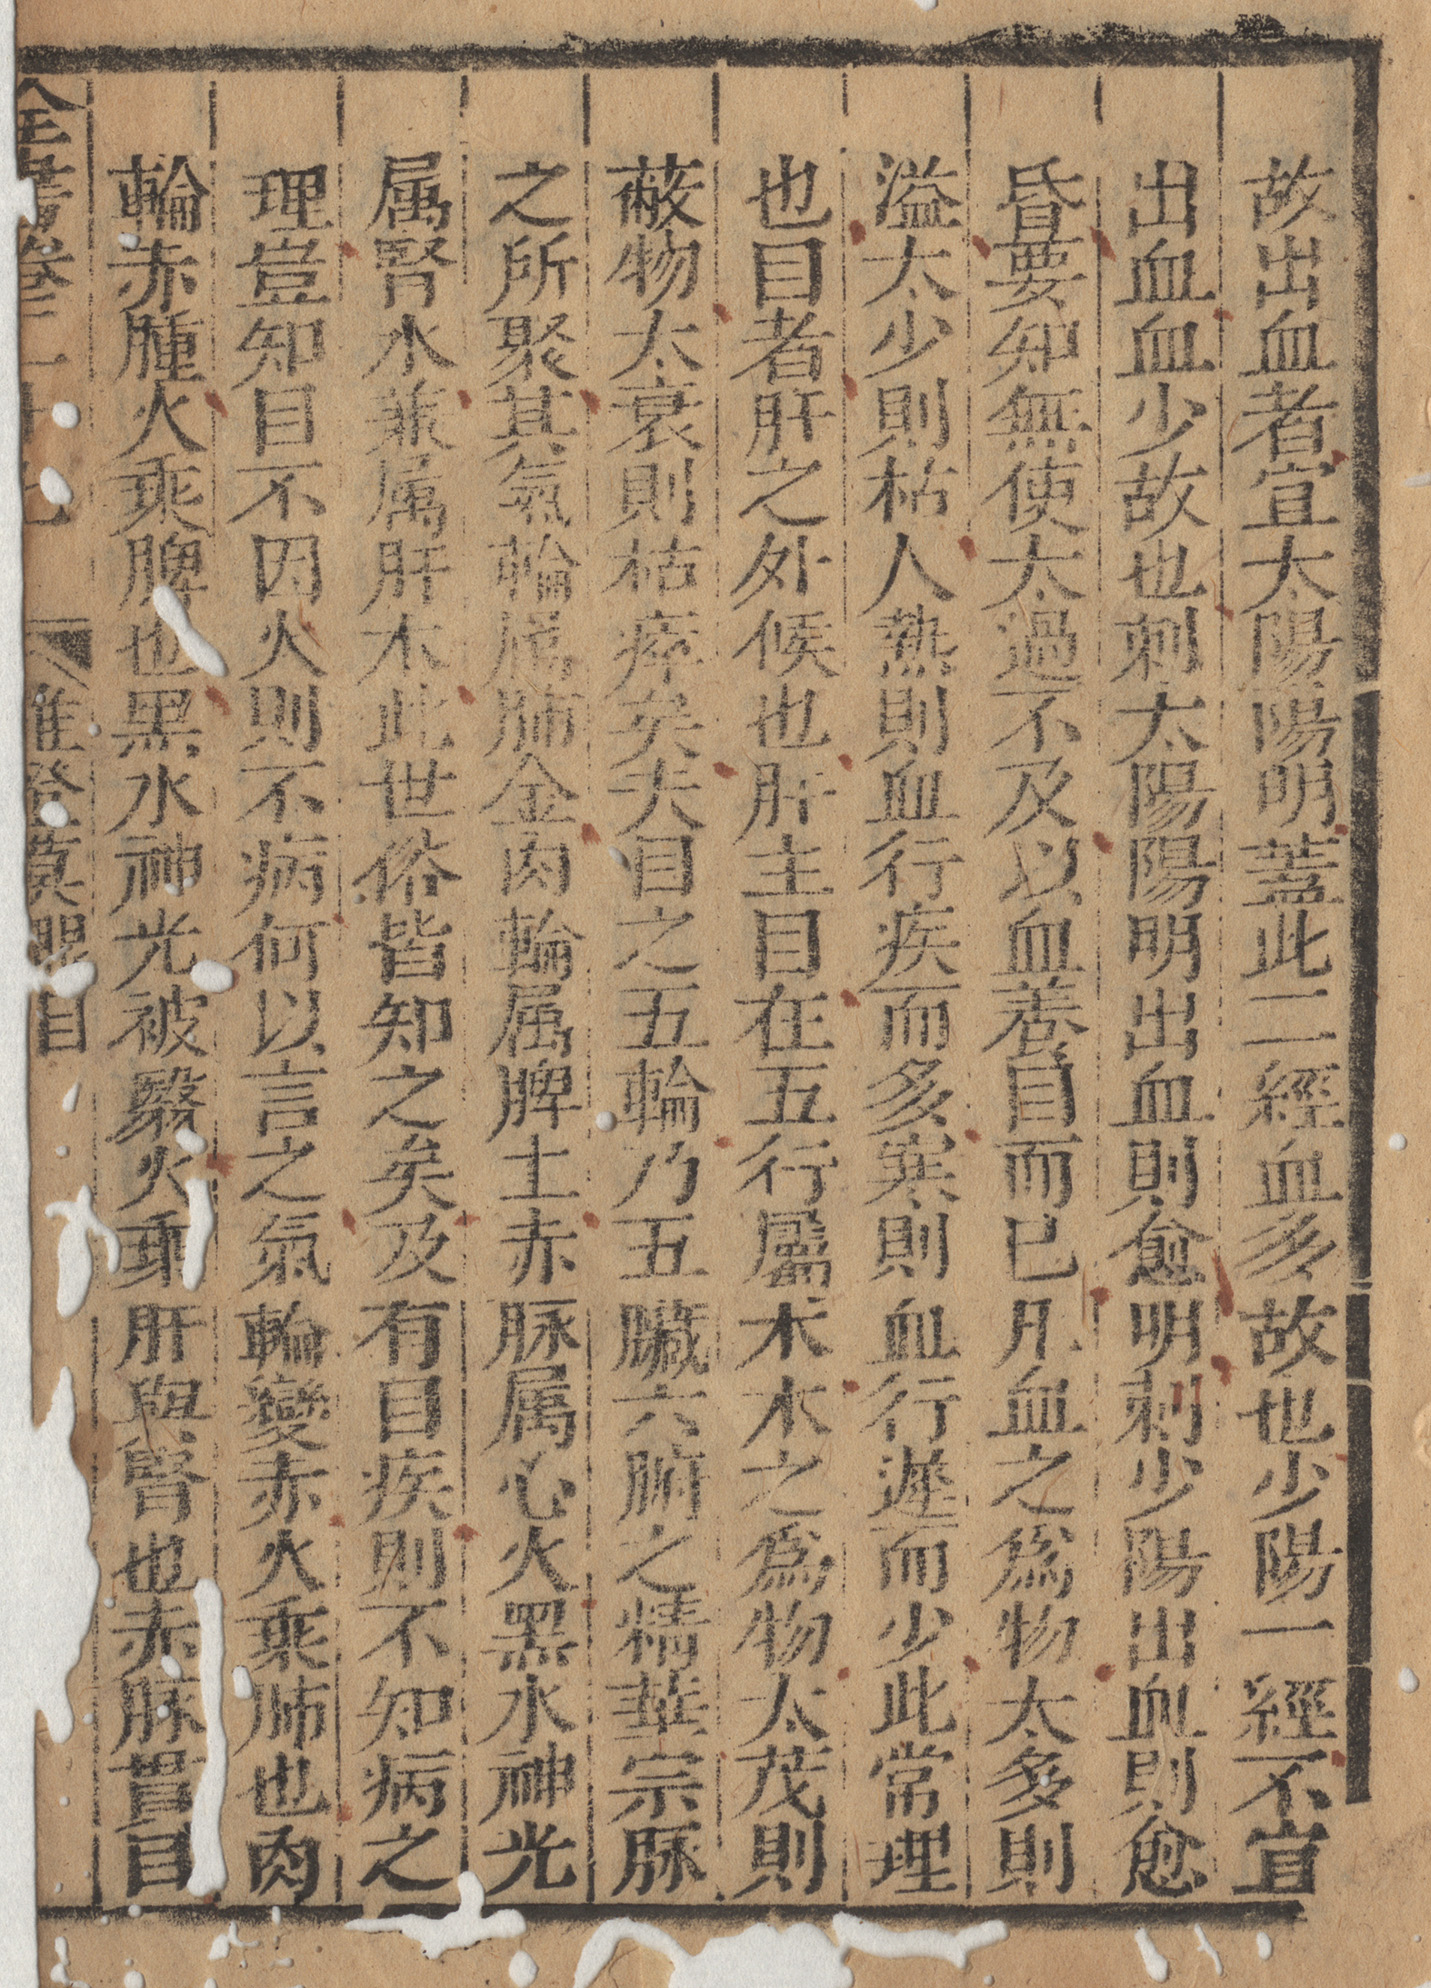 故出血者宜太陽陽明蓋此二經血多故也少陽一經不宜
出血血少故也刺太陽陽明出血則愈明刺少陽出血則愈
昏要知無使太過不及以血養目而已凡血之為物太多則
溢太少則枯人熱則血行疾而多寒則血行遲而少此常理
也目者肝之外候也肝主目在五行屬木木之為物太茂則
蔽物太衰則枯瘁矣夫目之五輪乃五臟六腑之精華宗脉
之所聚其氣輪属肺金肉輪属脾土赤脉属心火黑水神光
属腎水兼属肝木此世俗皆知之矣及有目疾則不知病之
理豈知目不因火則不病何以言之氣輪變赤火乘肺也肉
輪赤腫火乘脾也黑水神光被翳火乘肝與腎也赤脉貫目
全書卷二十七 准䋲眼目